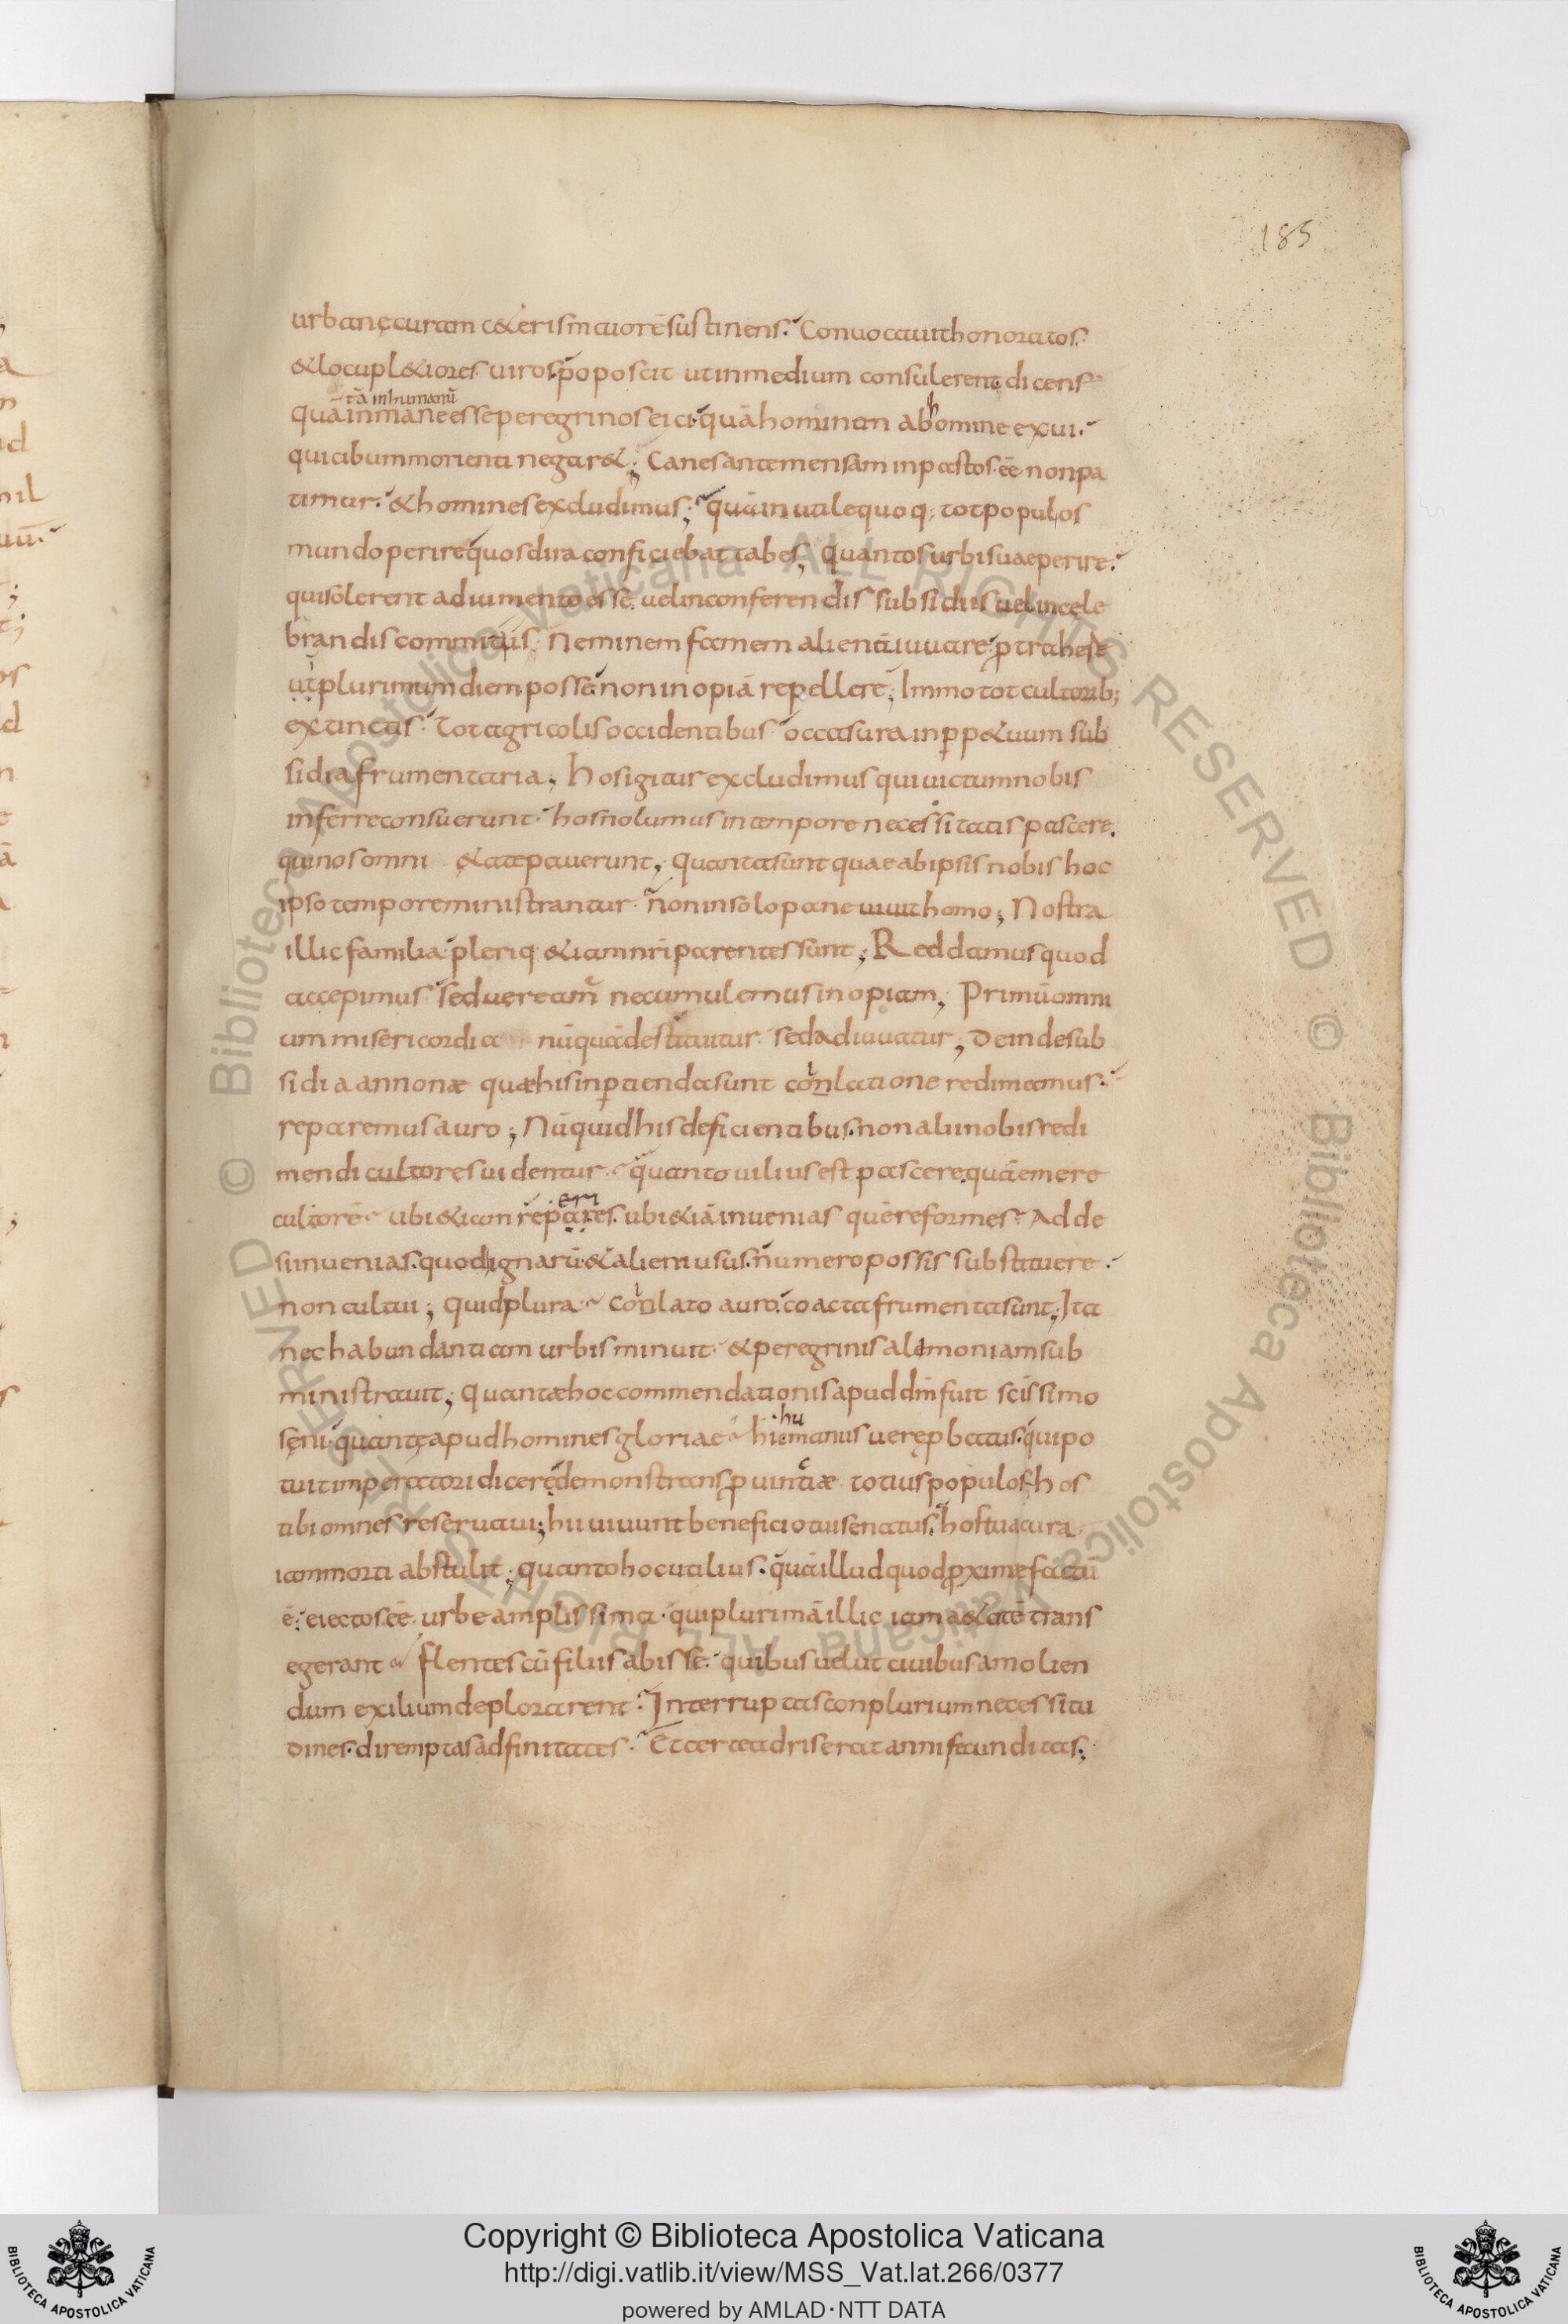 185
urbanę curam c&eris maiorē sustinens. Conuocauit honoratos.
& locupl&iores uiros. poposcit ut in medium consulerent. dicens
tā inhumanū
qua inmane esse peregrinos eici. quā hominem ab homine exui.
qui cibum morienti negar&; Canes ante mensam inpastos eē non pa
timur. & homines excludimus; quā inutile quoq; tot populos
mundo perire quos dira conficiebat tabes, quantos urbi suae perire.
qui solerent adiumento esse. uel in conferendis subsidiis uel in cele
brandis commitiis. Neminem famem alienā iuuare. ptrahere
ut plurimum diem posse. non inopiā repellere; Immo tot cultorib;
extinctis. Tot agricolis occidentibus. occasura in pp&uum sub
sidia frumentaria; Hos igitur excludimus qui uictum nobis
inferre consuerunt. hos nolumus in tempore necessitatis pascere.
qui nos omni &ate pauerunt, quanta sunt quae ab ipsis nobis hoc
ipso tempore ministrantur. non in solo pane uiuit homo; Nostra
illic familia. pleriq &iam nr̄i parentes sunt; Reddamus quod
accepimus. sed ueream̄ ne cumulemus inopiam, Primū omni
um misericordia nūquā destituitur sed adiuuatur, Deinde sub
sidia annonæ quæ his inptienda sunt conlatione redimamus.
reparemus auro; Nūquid his deficientibus. non alii nobis redi
mendi cultores uidentur. quanto uilius est pascere. quā emere
cultorē ubi &iam repares. ubi &iā inuenias quē reformes. Adde
eri
si inuenias. quod ignarū. & alieni usus. numero possis substituere.
non cultui; quid plura conlato auro. coacta frumenta sunt; Ita
nec habundantiam urbis minuit. & peregrinis alimoniam sub
ministrauit; quantæ hoc commendationis apud dm̄ fuit scissimo
seni. quantę apud homines gloriae hiemanus uere pbatus. qui po
hu
tuit imperatori dicere. demonstrans puintiæ totius populos. hos
tibi omnes reseruaui; hii uiuunt beneficio tui senatus. hos tua cura
iam morti abstulit; quanto hoc utilius. quā illud quod pxime factū
ē. eiectos eē. urbe amplissima. qui plurimā illic iam a&atē trans
egerant flentes cū filiis abisse. quibus uelut ciuibus amolien
dum exilium deplorarent. Interruptas conplurium necessitu
dines. diremptas adfinitates. Et certe adriserat anni fecunditas;
Copyright © Biblioteca Apostolica Vaticana
http://digi.vatlib.it/view/MSS_Vat.lat.266/0377
powered by AMLAD·NTT DATA